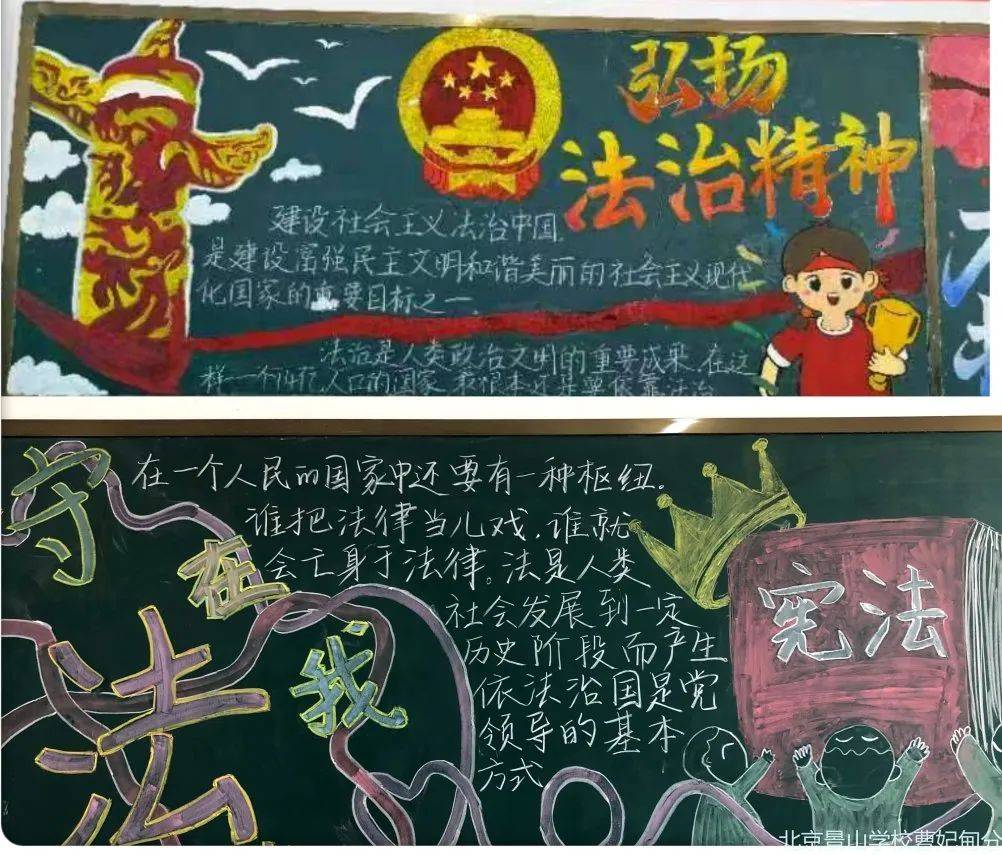 弘扬
法治精神
建设社会主义法治中国.
是建设富强民主文明和谐美丽的社会主义现代
化国家的重要目标之一
法治是人类政治文明的重要成果.在这
样一个14亿人口的国家
守
法
在
我
在一个人民的国家中还要有一种枢纽。
谁把法律当儿戏,谁就
会亡身于法律。法是人类
社会发展到一定
历史阶段而产生
依法治国是党
领导的基本
方式
宪法
北京景山学校曹妃甸分